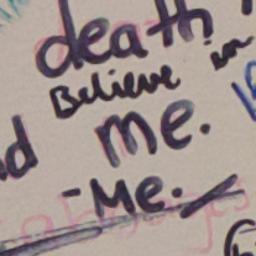 death
Believe in
me.
-Me.